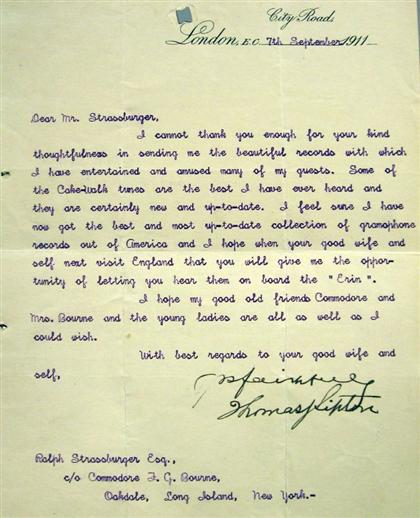 City Road,
London, E.C. 7th September, 1911
Dear Mr. Strassburger,
I cannot thank you enough for your kind
thoughtfulness in sending me the beautiful records with which
I have entertained and amused many of my guests. Some of
the Cake-Walk tunes are the best I have ever heard and
they are certainly new and up-to-date. I feel sure I have
now got the best and most up-to-date collection of gramophone
records out of America and I hope when your good wife and
self next visit England that you will give me the oppor-
tunity of letting you hear them on board the "Erin".
I hope my good old friends Commodore and
Mrs. Bourne and the young ladies are all as well as I
could wish.
With best regards to your good wife and
self,
Thomas J Lipton
Ralph Strassburger Esq.,
c/o Commodore F. G. Bourne,
Oakdale, Long Island, New York.-